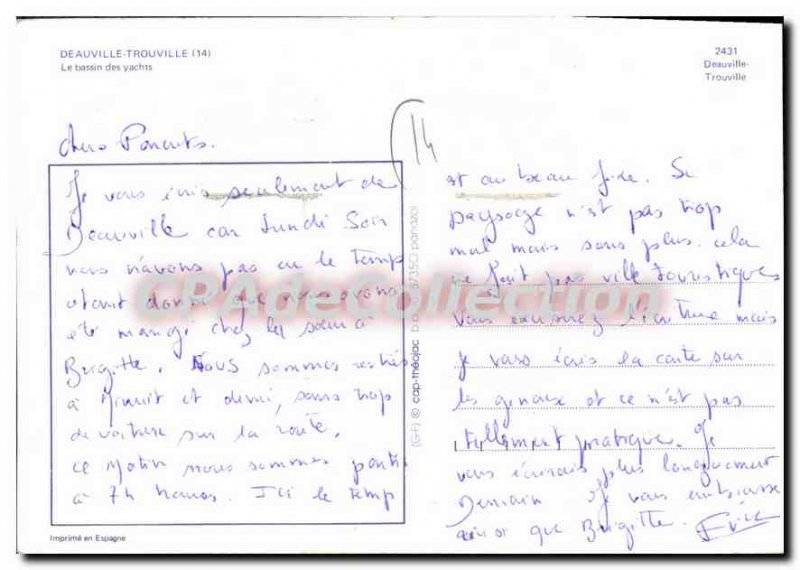 DEAUVILLE-TROUVILLE (14)
Le bassin des yachts
2431
Deauville-
Trouville
14
chers Parents.
Je vous écris seulement de
Deauville car Lundi Soir
nous n'avons pas eu le temps
étant donné que nous avons
été mangé chez la sœur à
Brigitte. Nous sommes rentrés
à Minuit et demi, sans trop
de voiture sur la route.
ce Matin nous sommes partis
à 7h Ici le temps
est au beau fixe. Le
paysage n'est pas trop
mal mais sans plus. cela
ne fait pas ville touristique
vous excuserez l'écriture mais
je vous écris la carte sur
les genoux et ce n'est pas
tellement pratique. Je
vous écrirais plus longuement
Demain Je vous embrasse
ainsi que Brigitte.
(G-F) © cap-théojac 87350 panazol
Imprimé en Espagne
CPADeCollection